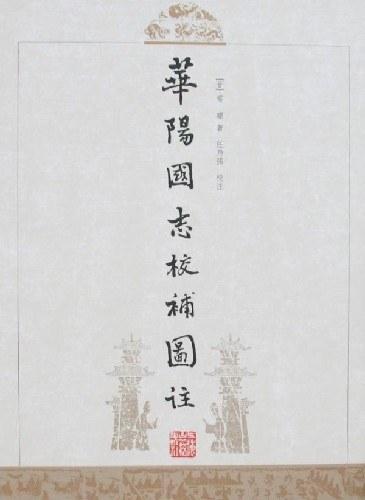 華陽國志校補圖注
[晋] 常璩 著 任乃強 校注